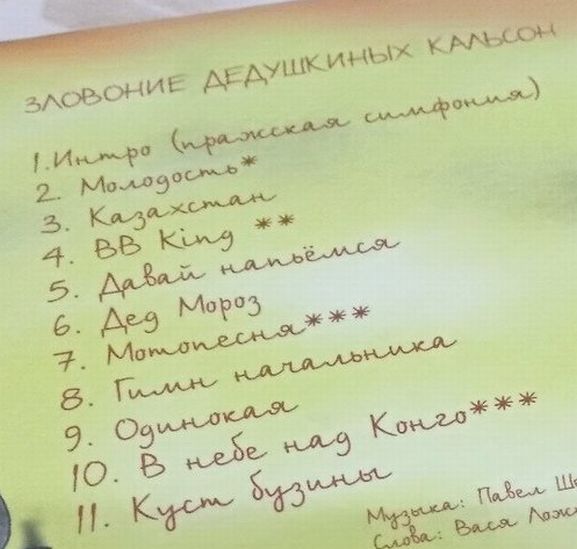 ЗЛОВОНИЕ ДЕДУШКИНЫХ КАЛЬСОН
1. Интро (пражская симфония)
2. Молодость*
3. Казахстан
4. BB King **
5. Давай напьёмся
6. Дед Мороз
7. Мотопесня***
8. Гимн начальника
9. Одинокая
10. В небе над Конго***
11. Куст бузины
Музыка: Павел
Слова: Вася